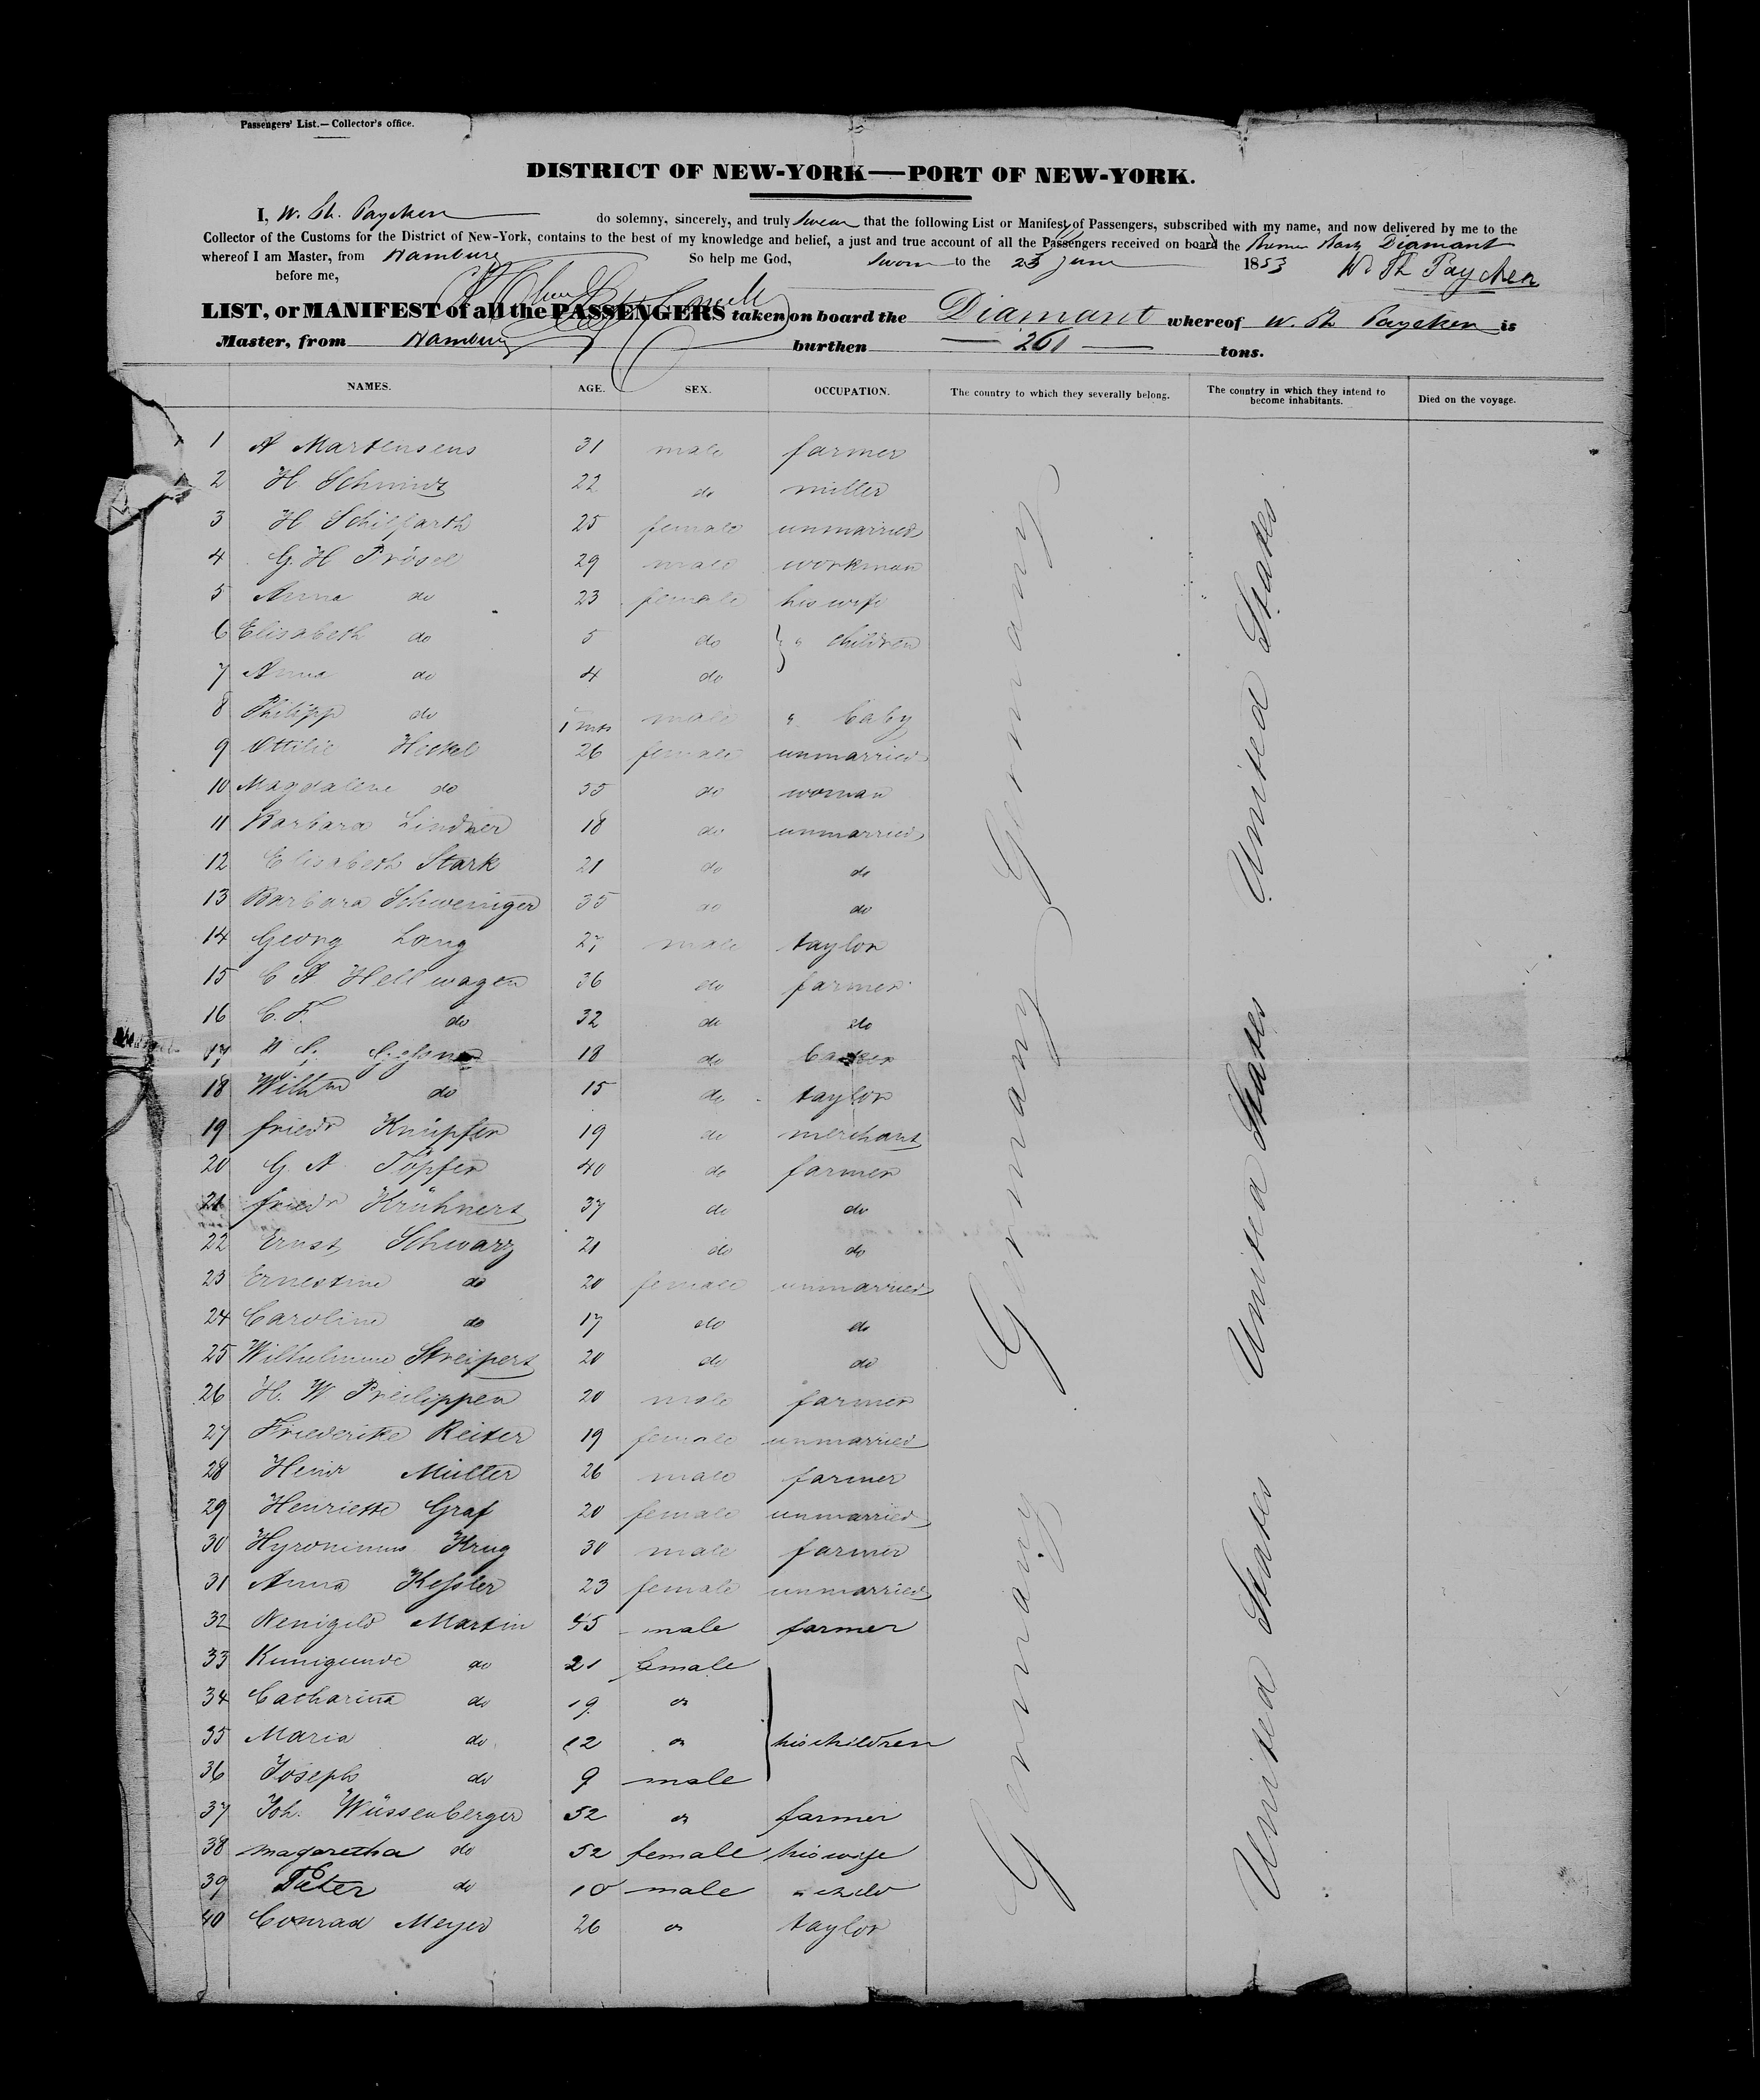 Passengers' List.—Collector's office.
DISTRICT OF NEW-YORK—PORT OF NEW-YORK.
I, W. Th. Paycken do solemny, sincerely, and truly swear that the following List or Manifest of Passengers, subscribed with my name, and now delivered by me to the
Collector of the Customs for the District of New-York, contains to the best of my knowledge and belief, a just and true account of all the Passengers received on board the Bremer Bark Diamant
whereof I am Master, from Hamburg So help me God, Sworn to the 23 June 1853 W. Th Paycken
before me,
LIST, or MANIFEST of all the PASSENGERS taken on board the Diamant whereof W. Th Paycken is
Master, from Hamburg burthen 261 tons.
NAMES. AGE. SEX. OCCUPATION. The country to which they severally belong. The country in which they intend to become inhabitants. Died on the voyage.
1 A Martensens 31 male farmer
2 H Schmidt 22 do miller
3 H Schilfarth 25 female unmarried
4 G. H Prösel 29 male workman
5 Anna do 23 female his wife
6 Elisabeth do 5 do } " children
7 Anna do 4 do
8 Philipp do male " baby
9 Ottilie Heckel 26 female unmarried
10 Magdalene do 55 do woman
11 Barbara Lindner 18 do unmarried
12 Elisabeth Stark 21 do do
13 Barbara Schweniger 35 do do
14 Georg Lang 27 male taylor
15 C A Hellwagen 36 do farmer
16 C. F. do 32 do do
17 18 do
18 Wilhm do 15 do taylor
19 friedr Knüpfer 19 do merchant
20 G. A Töpfer 40 do farmer
21 friedr Krühnert 37 do do
22 Ernst Schwarz 21 do do
23 Ernestine do 20 female unmarried
24 Caroline do 17 do do
25 Wilhelmine Streipert 20 do do
26 H. W Preilippen 20 male farmer
27 Friederike Reiter 19 female unmarried
28 Heinr Müller 26 male farmer
29 Henriette Graf 20 female unmarried
30 Hyronimus Krug 30 male farmer
31 Anna Kessler 23 female unmarried
32 Martin 45 male farmer
33 Kunigunde do 21 female
34 Catharina do 19 do
35 Maria do 12 do his children
36 Joseph do 9 male
37 Joh. Wüssenberger 52 do farmer
38 magaretha do 52 female his wife
39 Peter do 10 male " child
40 Conrad Meyer 26 do taylor
Germany Germany Germany
United States United States United States